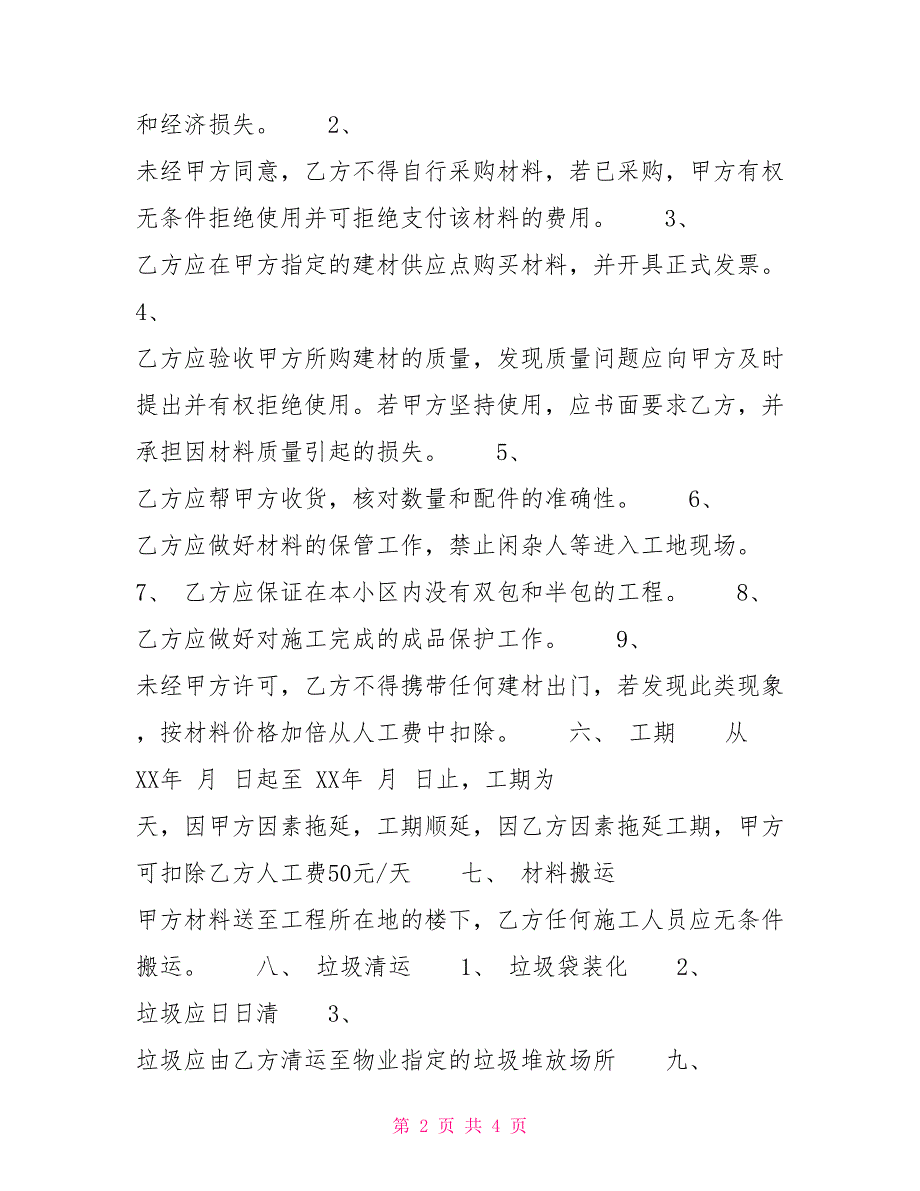 和经济损失。 2、
未经甲方同意，乙方不得自行采购材料，若已采购，甲方有权
无条件拒绝使用并可拒绝支付该材料的费用。 3、
乙方应在甲方指定的建材供应点购买材料，并开具正式发票。
4、
乙方应验收甲方所购建材的质量，发现质量问题应向甲方及时
提出并有权拒绝使用。若甲方坚持使用，应书面要求乙方，并
承担因材料质量引起的损失。 5、
乙方应帮甲方收货，核对数量和配件的准确性。 6、
乙方应做好材料的保管工作，禁止闲杂人等进入工地现场。
7、 乙方应保证在本小区内没有双包和半包的工程。 8、
乙方应做好对施工完成的成品保护工作。 9、
未经甲方许可，乙方不得携带任何建材出门，若发现此类现象
，按材料价格加倍从人工费中扣除。 六、 工期 从
XX年 月 日起至 XX年 月 日止，工期为
天，因甲方因素拖延，工期顺延，因乙方因素拖延工期，甲方
可扣除乙方人工费50元/天 七、 材料搬运
甲方材料送至工程所在地的楼下，乙方任何施工人员应无条件
搬运。 八、 垃圾清运 1、 垃圾袋装化 2、
垃圾应日日清 3、
垃圾应由乙方清运至物业指定的垃圾堆放场所 九、
第 2 页 共 4 页